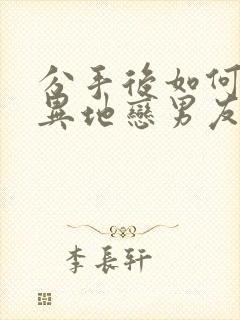 分手後如何
異地戀男友
李長軒